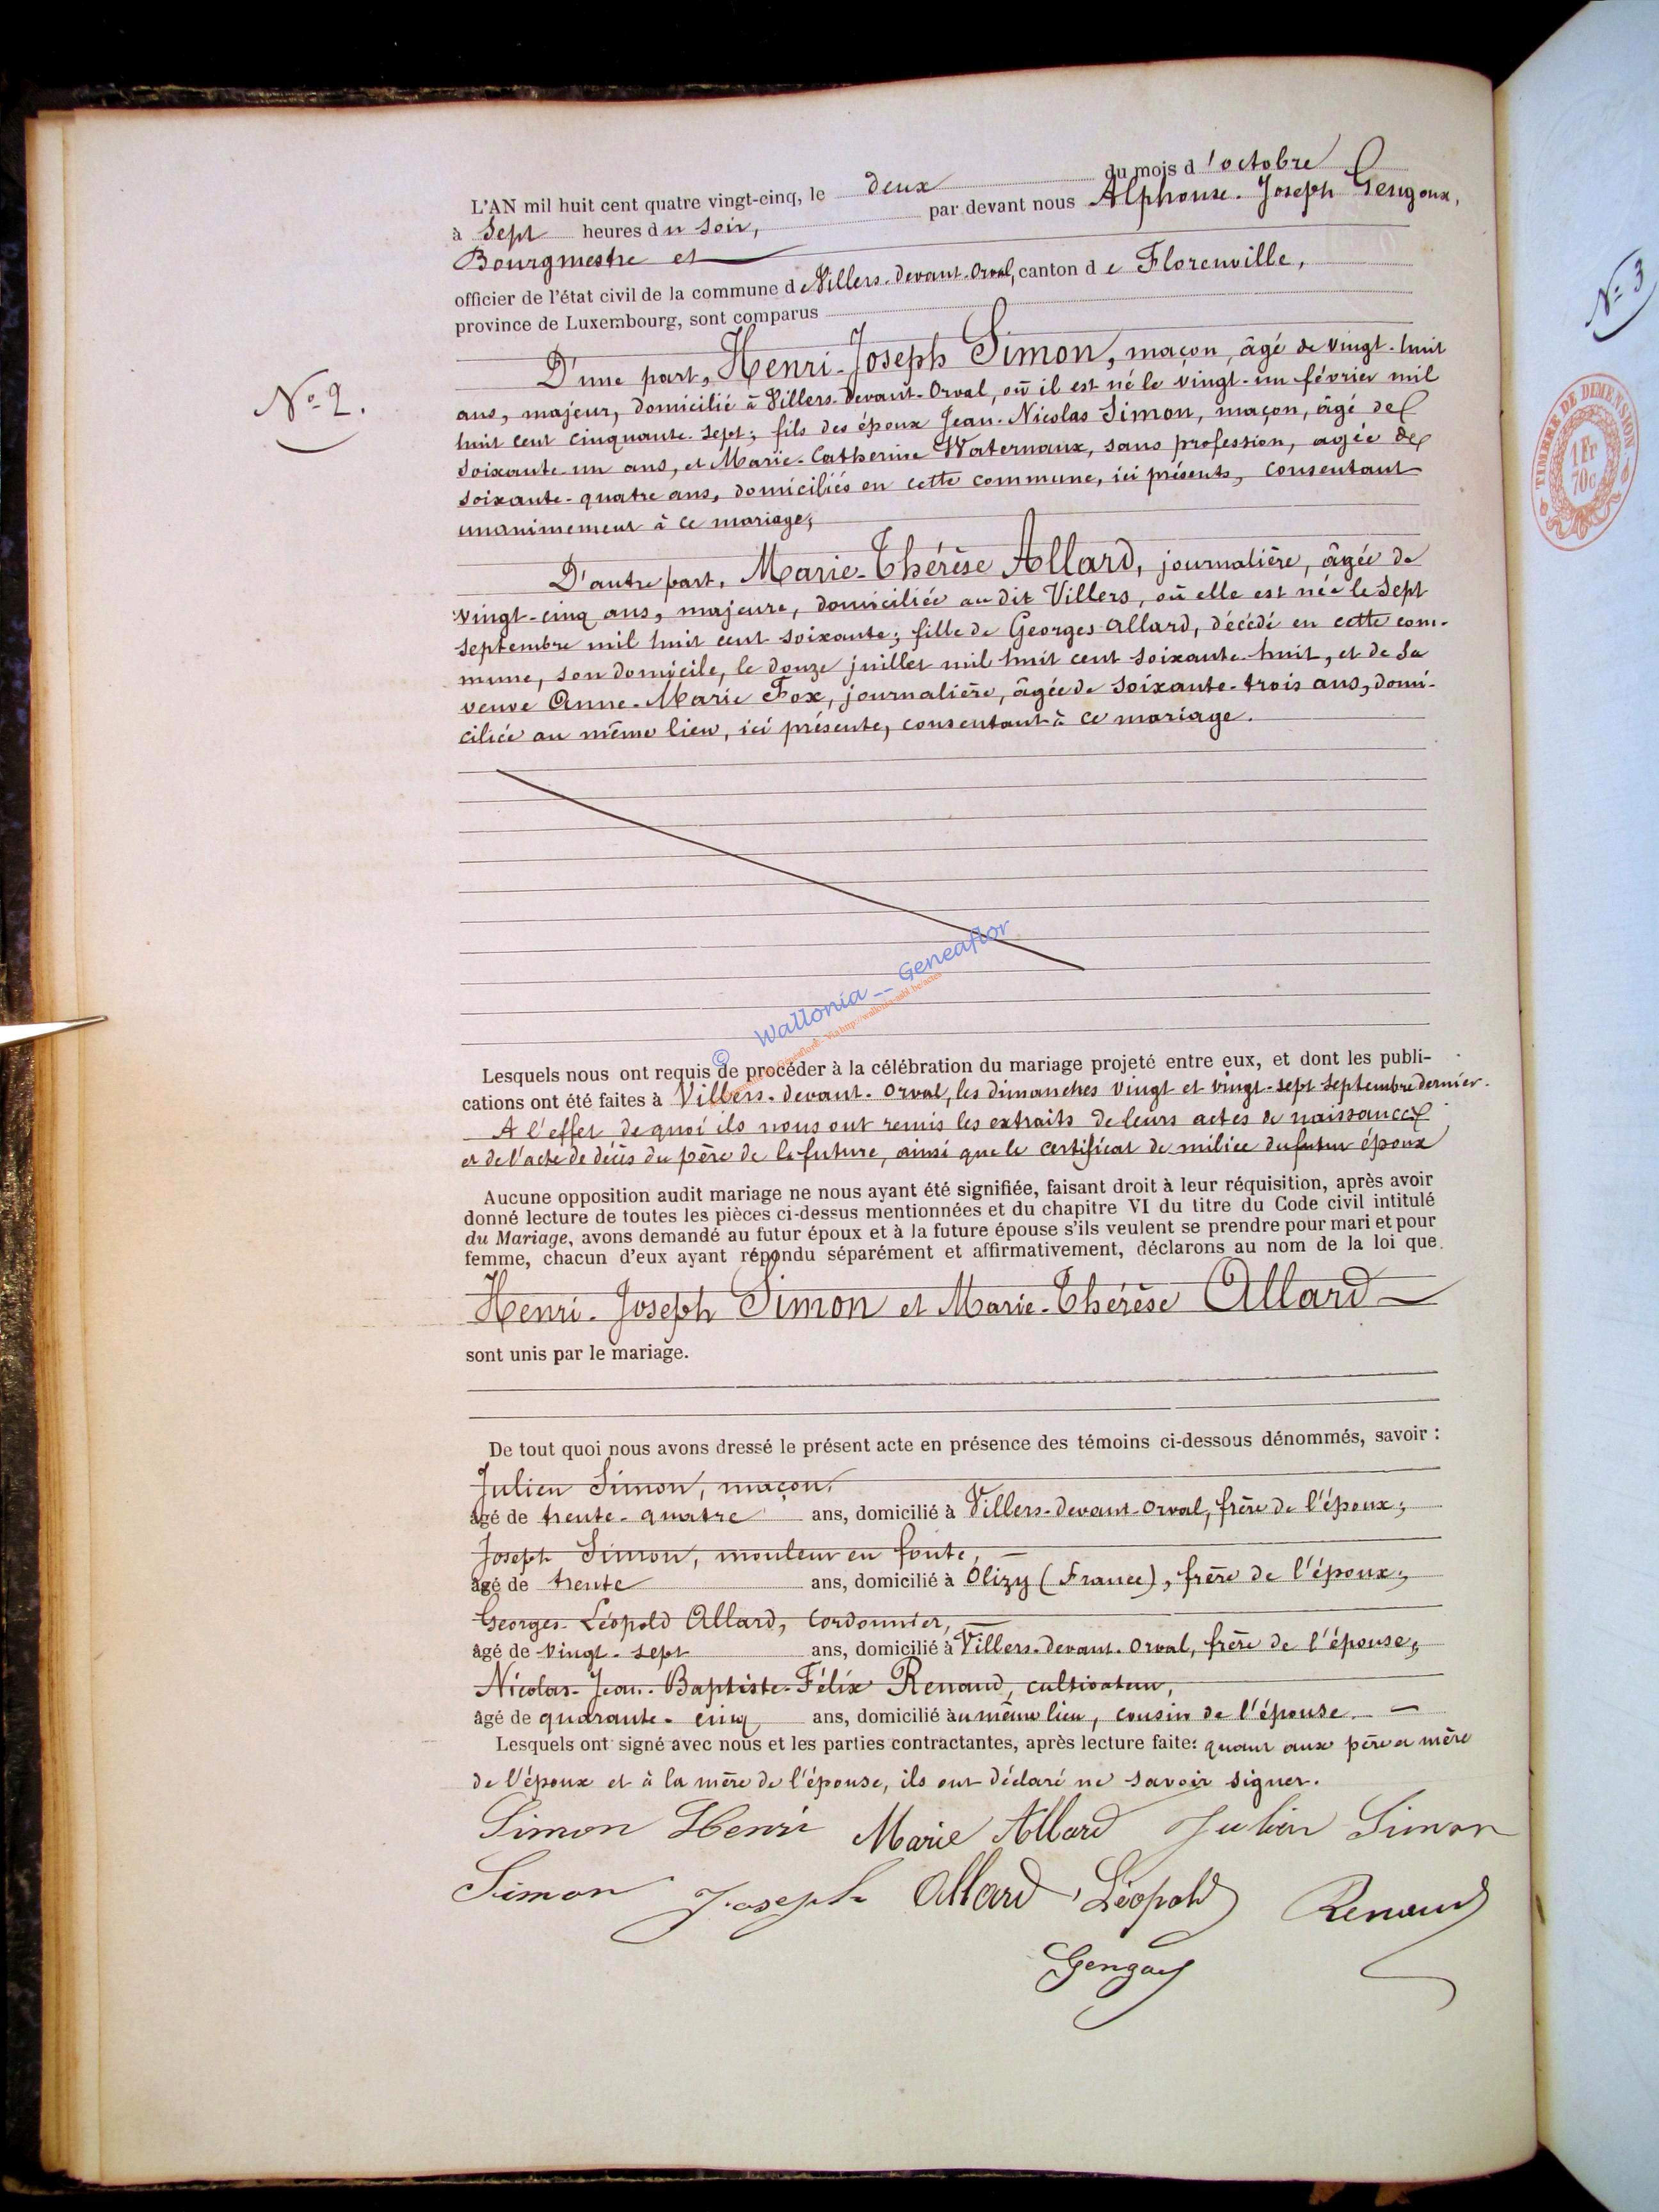 L'AN mil huit cent quatre vingt-cinq, le deux du mois d'octobre
à Sept heures du soir, par devant nous Alphonse-Joseph Gengoux,
Bourgmestre et
officier de l'état civil de la commune de Villers-devant-Orval, canton de Florenville,
province de Luxembourg, sont comparus
N° 2.
D'une part, Henri-Joseph Simon, maçon, âgé de vingt-huit
ans, majeur, domicilié à Villers-devant-Orval, où il est né le vingt-un février mil
huit cent cinquante-sept; fils des époux Jean-Nicolas Simon, maçon, âgé de
soixante-un ans, et Marie-Catherine Waternaux, sans profession, agée de
soixante-quatre ans, domiciliés en cette commune, ici présents, consentant
unanimement à ce mariage;
D'autre part, Marie-Thérèse Allard, journalière, âgée de
vingt-cinq ans, majeure, domiciliée au dit Villers, où elle est née le sept
septembre mil huit cent soixante; fille de Georges Allard, décédé en cette com-
mune, son domicile, le douze juillet mil huit cent soixante-huit, et de sa
veuve Anne-Marie Fox, journalière, âgée de soixante-trois ans, domi-
ciliée au même lieu, ici présente, consentant à ce mariage.
© Wallonia -- Geneaflor
Lesquels nous ont requis de procéder à la célébration du mariage projeté entre eux, et dont les publi-
cations ont été faites à Villers-devant-Orval, les dimanches vingt et vingt-sept septembre dernier.
A l'effet de quoi ils nous ont remis les extraits de leurs actes de naissance
et de l'acte de décès du père de la future, ainsi que le certificat de milice du futur époux
Aucune opposition audit mariage ne nous ayant été signifiée, faisant droit à leur réquisition, après avoir
donné lecture de toutes les pièces ci-dessus mentionnées et du chapitre VI du titre du Code civil intitulé
du Mariage, avons demandé au futur époux et à la future épouse s'ils veulent se prendre pour mari et pour
femme, chacun d'eux ayant répondu séparément et affirmativement, déclarons au nom de la loi que
Henri-Joseph Simon et Marie-Thérèse Allard
sont unis par le mariage.
De tout quoi nous avons dressé le présent acte en présence des témoins ci-dessous dénommés, savoir :
Julien Simon, maçon,
âgé de trente-quatre ans, domicilié à Villers-devant-Orval, frère de l'époux;
Joseph Simon, mouleur en fonte,
âgé de trente ans, domicilié à Olizy (France), frère de l'époux;
Georges-Léopold Allard, cordonnier,
âgé de vingt-sept ans, domicilié à Villers-devant-Orval, frère de l'épouse;
Nicolas-Jean-Baptiste-Félix Renaud, cultivateur,
âgé de quarante-cinq ans, domicilié au même lieu, cousin de l'épouse.
Lesquels ont signé avec nous et les parties contractantes, après lecture faite: quant aux père et mère
de l'époux et à la mère de l'épouse, ils ont déclaré ne savoir signer.
Simon Henri Marie Allard Julien Simon
Simon Joseph Allard Léopold Renaud
Gengoux
N° 3
TIMBRE DE DIMENSION
1 Fr
70c